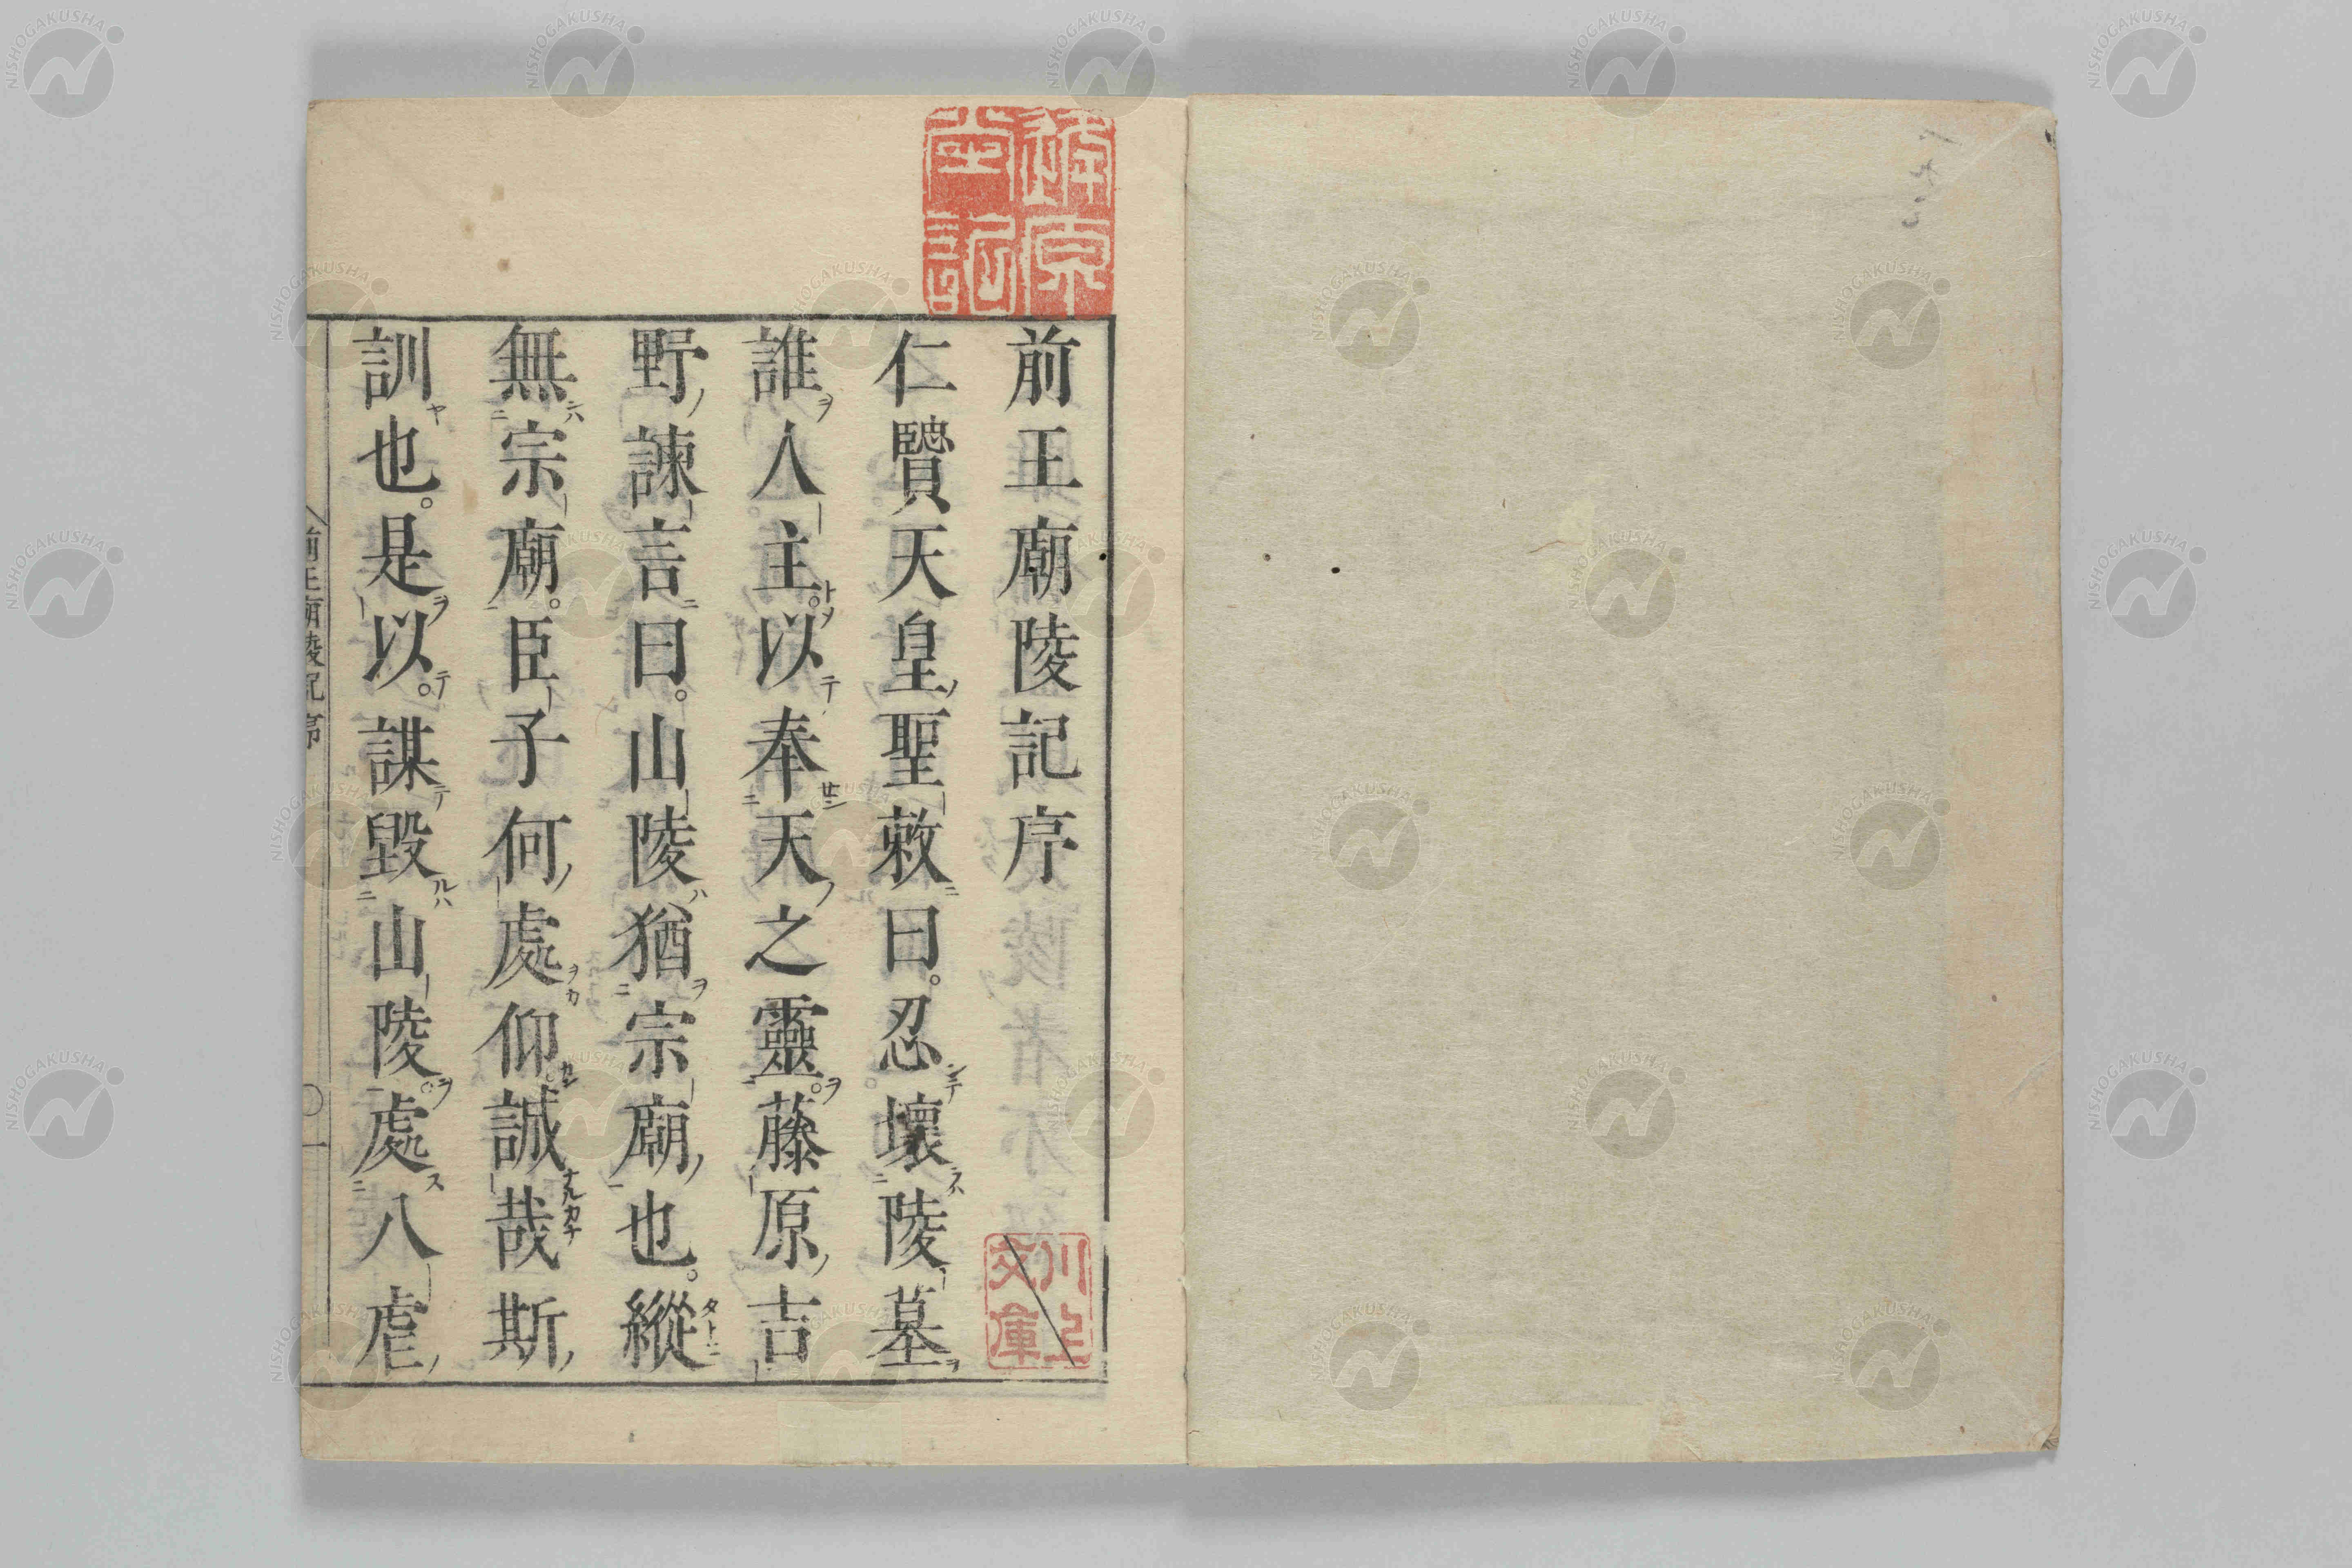 前王廟陵記序
仁賢天皇聖敕曰。忍壞陵墓
誰人主以奉天之靈藤原吉
野諫言曰。山陵猶宗廟也。縱
無宗廟。臣子何處仰誠哉斯
訓也。是以。謀毀山陵處八虐
前王廟陵記序
〇一
川上
文庫
NISHOGAKUSHA